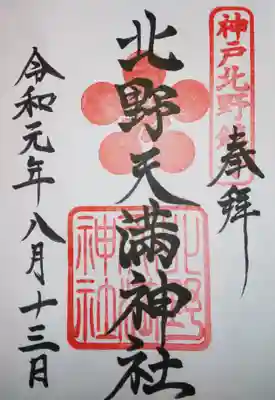 奉拝
神戸北野鎮
北野天満神社
北野天満神社
令和元年八月十三日